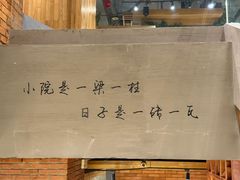 小院是一梁一柱
日子是一砖一瓦